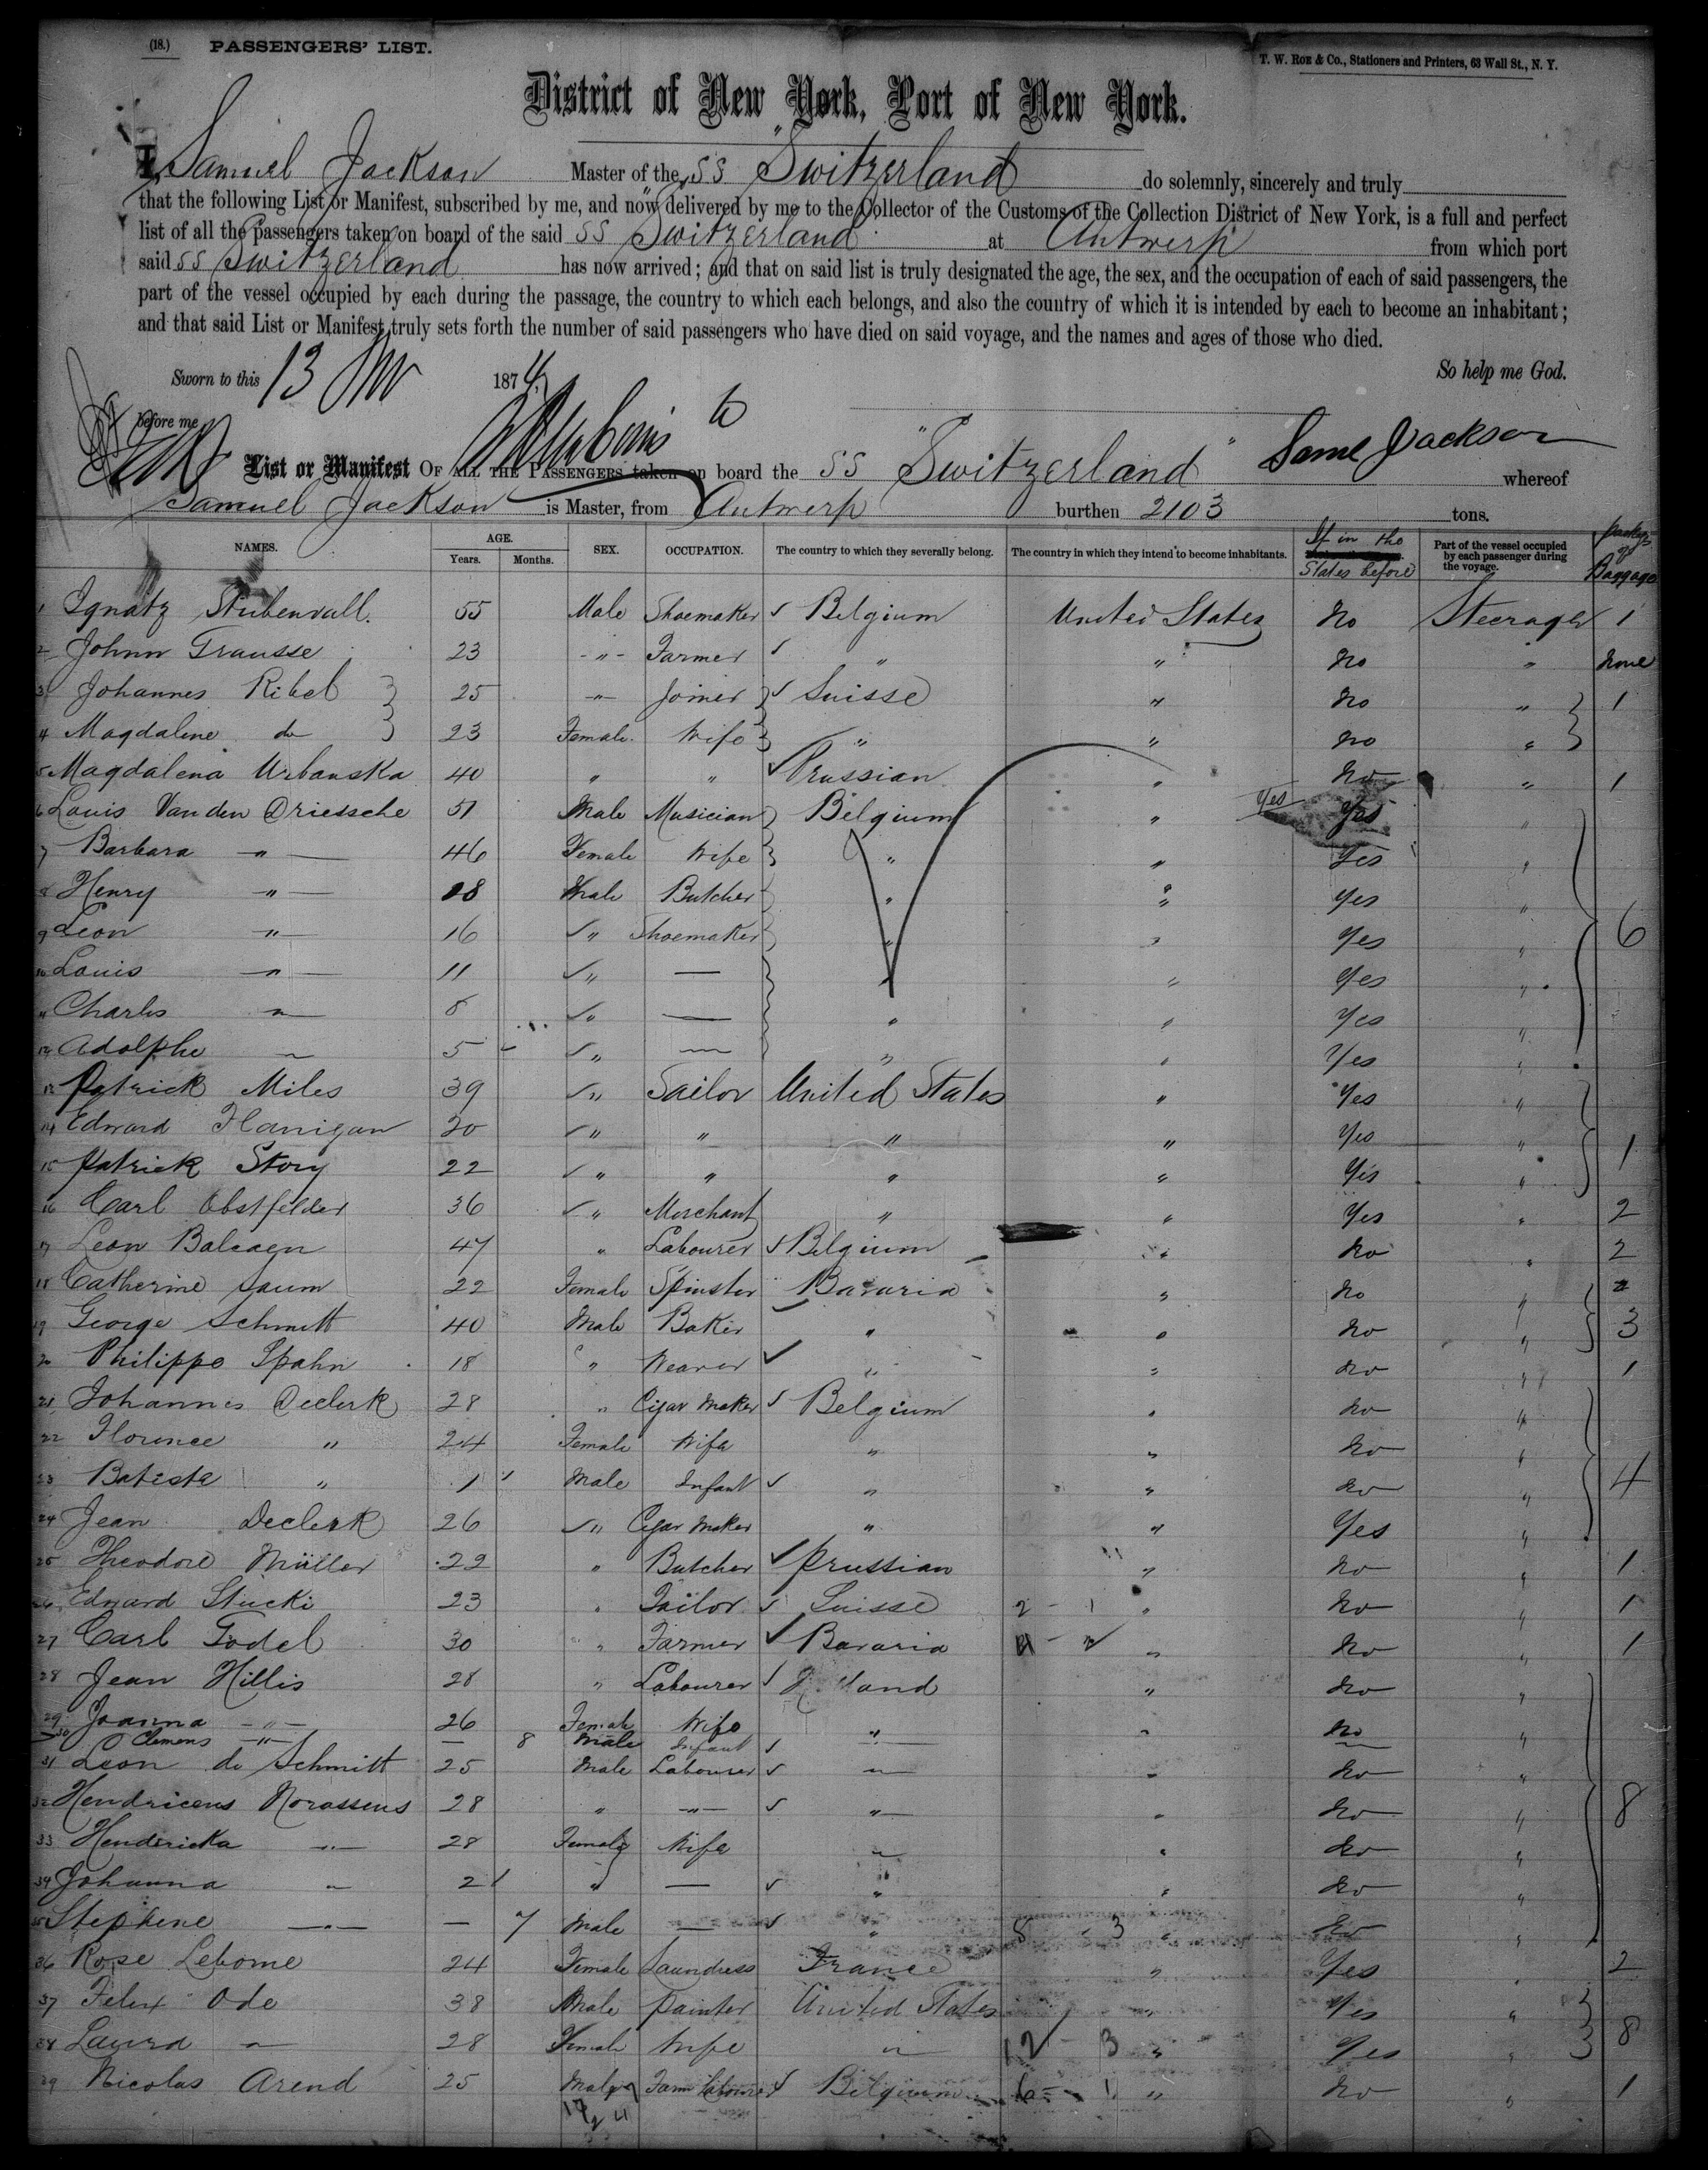 (18.) PASSENGERS' LIST.
T. W. Roe & Co., Stationers and Printers, 63 Wall St., N. Y.
District of New York, Port of New York.
I, Samuel Jackson Master of the SS "Switzerland do solemnly, sincerely and truly
that the following List or Manifest, subscribed by me, and now delivered by me to the Collector of the Customs of the Collection District of New York, is a full and perfect
list of all the passengers taken on board of the said SS "Switzerland" at Antwerp from which port
said SS Switzerland has now arrived; and that on said list is truly designated the age, the sex, and the occupation of each of said passengers, the
part of the vessel occupied by each during the passage, the country to which each belongs, and also the country of which it is intended by each to become an inhabitant;
and that said List or Manifest truly sets forth the number of said passengers who have died on said voyage, and the names and ages of those who died.
So help me God.
Sworn to this 13 Nov 1874,
before me
Saml Jackson
List or Manifest OF ALL THE PASSENGERS taken on board the SS "Switzerland" whereof
Samuel Jackson is Master, from Antwerp burthen 2103 tons.
NAMES. AGE. Years. Months. SEX. OCCUPATION. The country to which they severally belong. The country in which they intend to become inhabitants. If in the States before Part of the vessel occupied by each passenger during the voyage. packgs of Baggage
1 Ignatz Stubenvall. 55 Male Shoemaker Belgium United States No Steerage 1
2 Johnn Trausse 23 -"- Farmer " " No " None
3 Johannes Ribel 25 -"- Joiner Suisse " No " 1
4 Magdaline do 23 Female Wife " " No "
5 Magdalena Urbanska 40 " " Prussian " No " 1
6 Louis Van den Driessche 51 Male Musician Belgium " Yes Yes "
7 Barbara " 46 Female Wife " " Yes "
8 Henry " 18 Male Butcher " " Yes "
9 Leon " 16 " Shoemaker " " Yes " 6
10 Louis " 11 " — " " Yes "
11 Charles " 8 " — " " Yes "
12 Adolphe " 5 " — " " Yes "
13 Patrick Miles 39 " Sailor United States " Yes "
14 Edward Flanigan 20 " " " " Yes "
15 Patrick Story 22 " " " " Yes " 1
16 Carl Obstfelder 36 " Merchant " " Yes " 2
17 Leon Balcaen 47 " Labourer Belgium " No " 2
18 Catherine Saum 22 Female Spinster Bavaria " No " 2
19 George Schmitt 40 Male Baker " " No " 3
20 Philippe Spahn 18 " Weaver " " No " 1
21 Johannes Declerk 28 " Cigar Maker Belgium " No "
22 Florence " 24 Female Wife " " No "
23 Batiste " 1 Male Infant " " No " 4
24 Jean Declerk 26 " Cigar Maker " " Yes "
25 Theodore Müller 22 " Butcher Prussian " No " 1
26 Edward Stucki 23 " Tailor Suisse 2 - 1 " No " 1
27 Carl Godel 30 " Farmer Bavaria " No " 1
28 Jean Hillis 28 " Labourer Holland " No "
29 Joanna -"- 26 Female Wife " " No "
30 Clemens -"- — 8 Male Infant "
31 Leon de Schmitt 25 Male Labourer " " No "
32 Hendricens Norassens 28 " -"- " " No " 8
33 Hendericka -"- 28 Female Wife " " No "
34 Johanna " 2 " — " " No "
35 Stephene -"- — 7 Male — " 8 - 3 " No "
36 Rose Leborne 24 Female Laundress France " Yes " 2
37 Felix Ode 38 Male Painter United States " Yes "
38 Laura " 28 Female Wife " 12 - 3 " Yes " 8
39 Nicolas Arend 25 Male Farm labourer Belgium 6 - 1 " No " 1